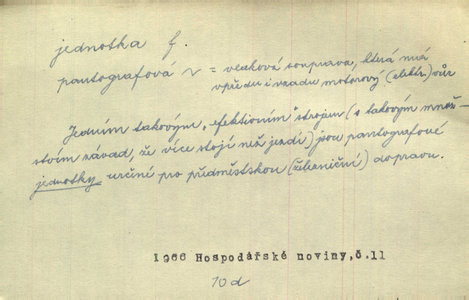 jednotka f.
pantografová ~ = vlaková souprava, která má
vpředu i vzadu motorový (elektr.) vůz
Jedním takovým „efektivním“ strojem (s takovým množ-
stvím závad, že více stojí než jezdí) jsou pantografové
jednotky určené pro předměstskou (železniční) dopravu.
1966 Hospodářské noviny, č.11
10d